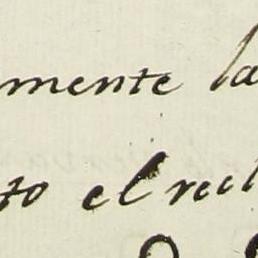 mente la
to el reci